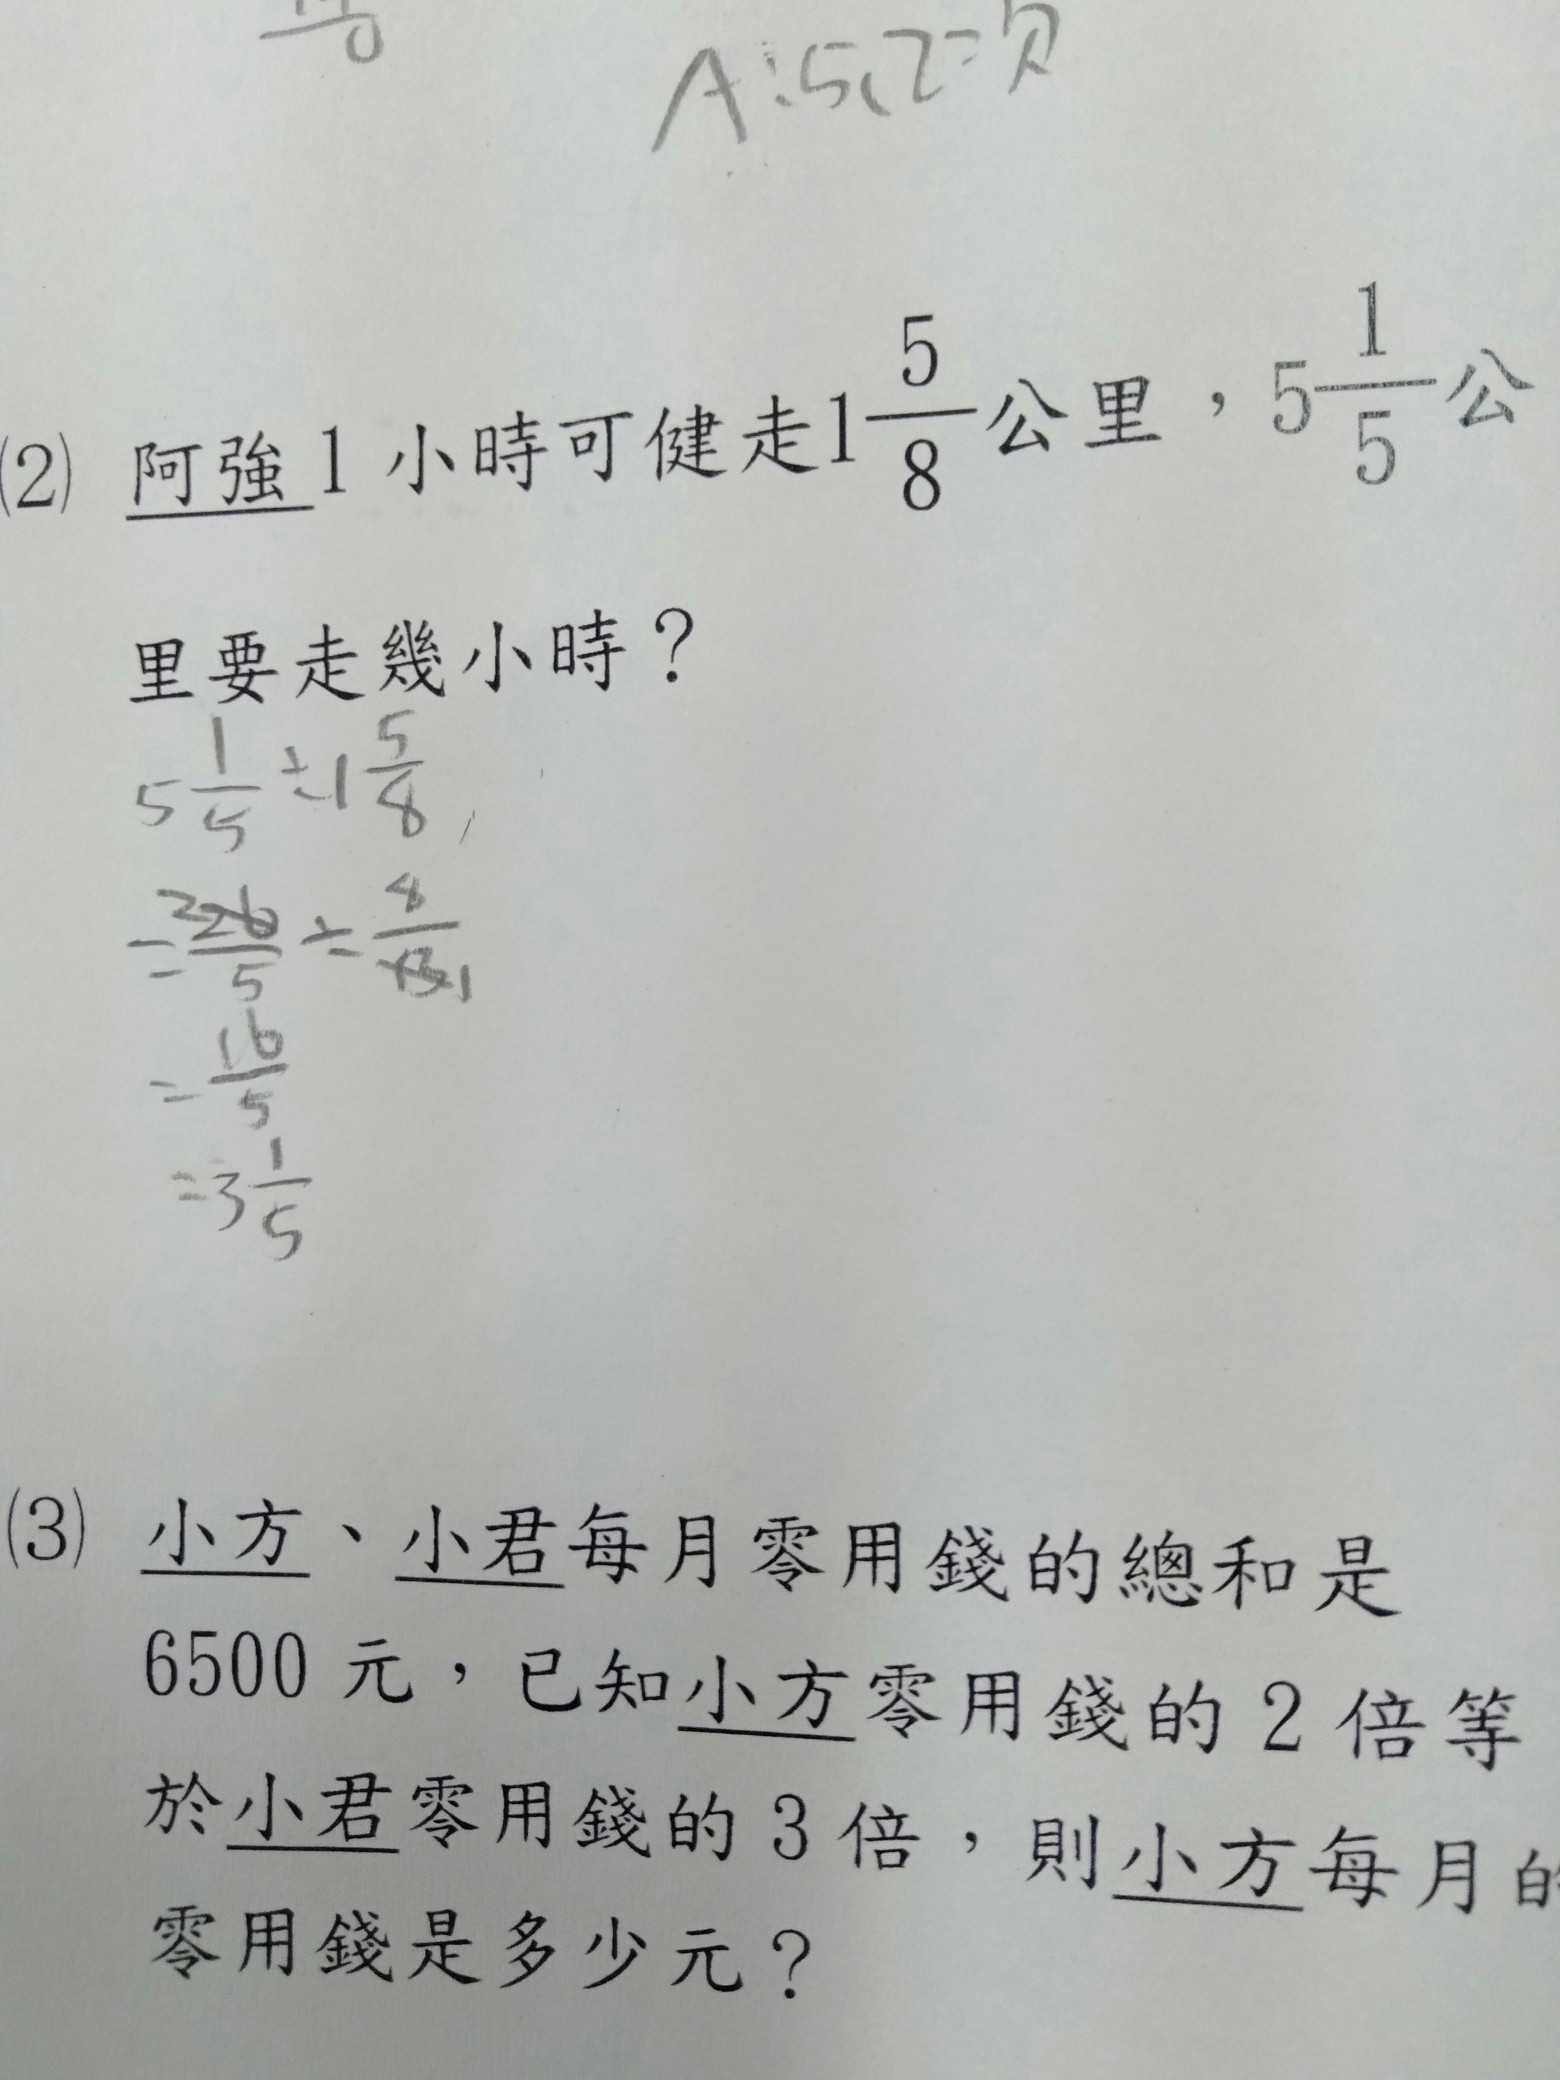 A:5,2次
(2) 阿強1小時可健走1 5/8公里，5 1/5公
里要走幾小時？
5 1/5÷1 5/8
=26/5÷8/13
=16/5
=3 1/5
(3) 小方、小君每月零用錢的總和是
6500元，已知小方零用錢的2倍等
於小君零用錢的3倍，則小方每月的
零用錢是多少元？